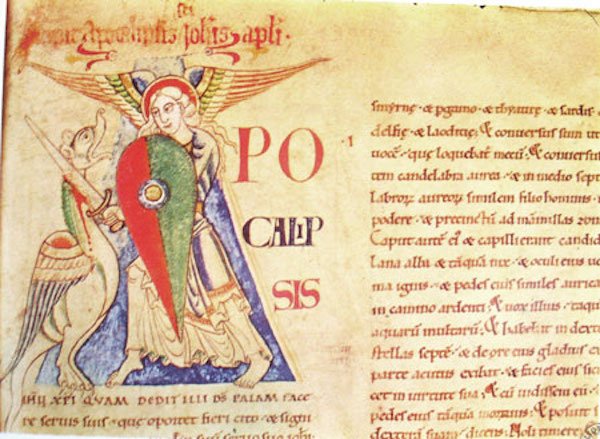 sci
Apocalipsis Ioh'is apli.
A
PO
CALIP
SIS
IHU XPI QUAM DEDIT ILLI DS PALAM FACE
re servis suis · que oportet fieri cito · & signi
servo suo
smyrnę · & pgamo · & thyatirę · & sardis ·
delfię · & laoditię; & conversus sum ut
vocē · quę loquebat' mecū; & conversus
tem candelabra aurea · & in medio septē
labrorū aureorū similem filio hominis ·
podere · & precinctū ad mamillas zonā
Caput autē ei' & capilli erant candidi
lana alba · & tāquā nix · & oculi eius
ma ignis · & pedes eius similes aurical
in camino ardenti; & vox illius · tāquā
aquarū multarū; & habebat in dexte
stellas septē · & de ore eius gladius ex
parte acutus exibat · & facies eius sic
cet in virtute sua; & cū vidissem eū ·
pedes eius tāquā mortuus; & posuit
dexterā suam · dicens; Noli timere